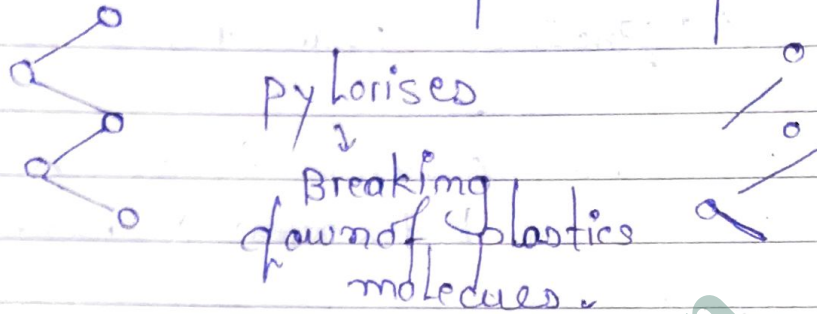 pylorises
Breaking
down of plastics
molecues.